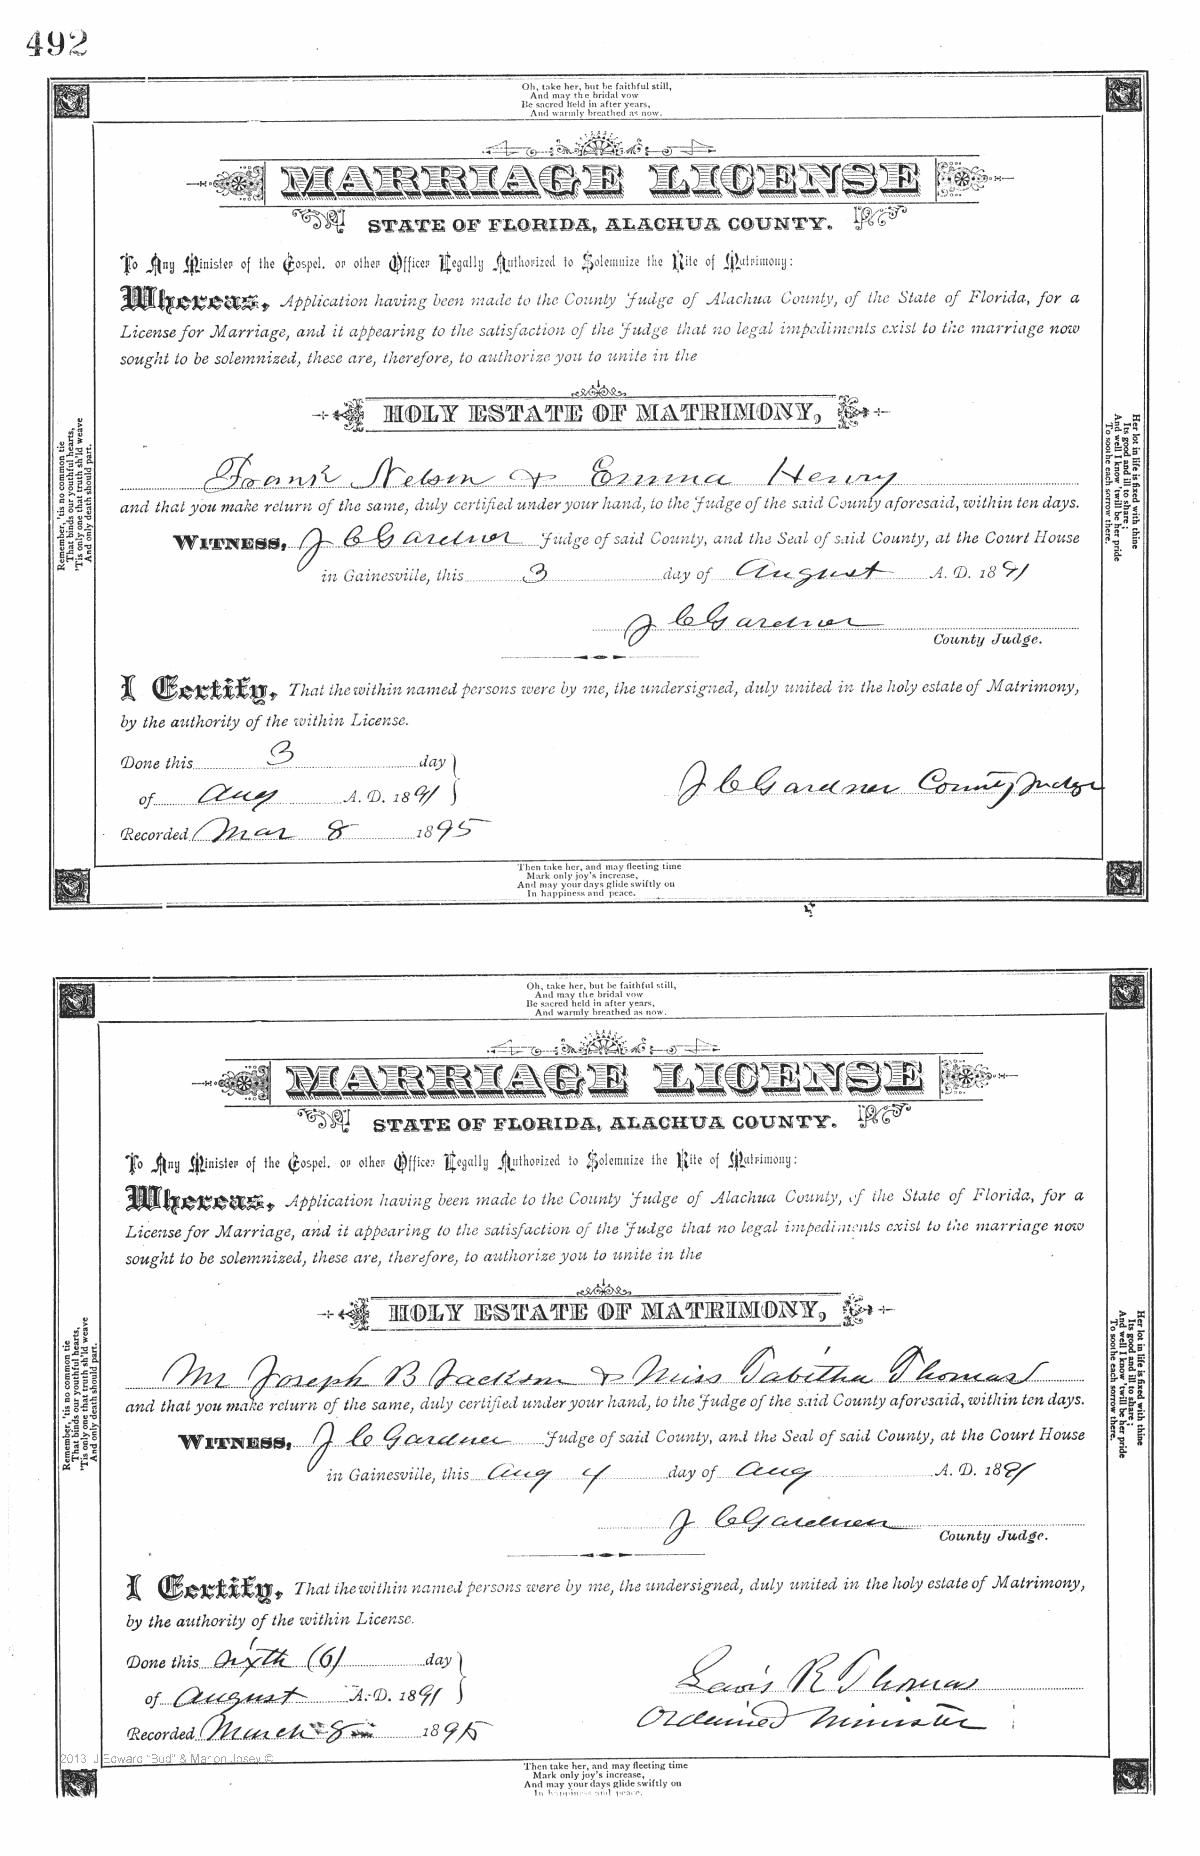 492
Oh, take her, but be faithful still,
And may the bridal vow
Be sacred held in after years,
And warmly breathed as now.
MARRIAGE LICENSE
STATE OF FLORIDA, ALACHUA COUNTY.
To Any Minister of the Gospel, or other Officer Legally Authorized to Solemnize the Rite of Matrimony:
Whereas, Application having been made to the County Judge of Alachua County, of the State of Florida, for a
License for Marriage, and it appearing to the satisfaction of the Judge that no legal impediments exist to the marriage now
sought to be solemnized, these are, therefore, to authorize you to unite in the
HOLY ESTATE OF MATRIMONY,
Frank Nelson & Emma Henry
and that you make return of the same, duly certified under your hand, to the Judge of the said County aforesaid, within ten days.
WITNESS, J C Gardner Judge of said County, and the Seal of said County, at the Court House
in Gainesville, this 3 day of August A. D. 1891
J C Gardner
County Judge.
I Certify, That the within named persons were by me, the undersigned, duly united in the holy estate of Matrimony,
by the authority of the within License.
Done this 3 day
of Aug A. D. 1891
J C Gardner County Judge
Recorded Mar 8 1895
Remember, 'tis no common tie
That binds our youthful hearts,
'Tis only one that truth sh'ld weave
And only death should part.
Her lot in life is fixed with thine
Its good and ill to share;
And well I know 'twill be her pride
To soothe each sorrow there.
Then take her, and may fleeting time
Mark only joy's increase,
And may your days glide swiftly on
In happiness and peace.
Oh, take her, but be faithful still,
And may the bridal vow
Be sacred held in after years,
And warmly breathed as now.
MARRIAGE LICENSE
STATE OF FLORIDA, ALACHUA COUNTY.
To Any Minister of the Gospel, or other Officer Legally Authorized to Solemnize the Rite of Matrimony:
Whereas, Application having been made to the County Judge of Alachua County, of the State of Florida, for a
License for Marriage, and it appearing to the satisfaction of the Judge that no legal impediments exist to the marriage now
sought to be solemnized, these are, therefore, to authorize you to unite in the
HOLY ESTATE OF MATRIMONY,
Mr Joseph B Jackson & Miss Tabitha Thomas
and that you make return of the same, duly certified under your hand, to the Judge of the said County aforesaid, within ten days.
WITNESS, J C Gardner Judge of said County, and the Seal of said County, at the Court House
in Gainesville, this Aug 4 day of Aug A. D. 1891
J C Gardner
County Judge.
I Certify, That the within named persons were by me, the undersigned, duly united in the holy estate of Matrimony,
by the authority of the within License.
Done this sixth (6) day
of August A. D. 1891
Lewis R Thomas
Ordained Minister
Recorded March 8 1895
Remember, 'tis no common tie
That binds our youthful hearts,
'Tis only one that truth sh'ld weave
And only death should part.
Her lot in life is fixed with thine
Its good and ill to share;
And well I know 'twill be her pride
To soothe each sorrow there.
2013 J Edward "Bud" & Marion Josey ©
Then take her, and may fleeting time
Mark only joy's increase,
And may your days glide swiftly on
In happiness and peace.